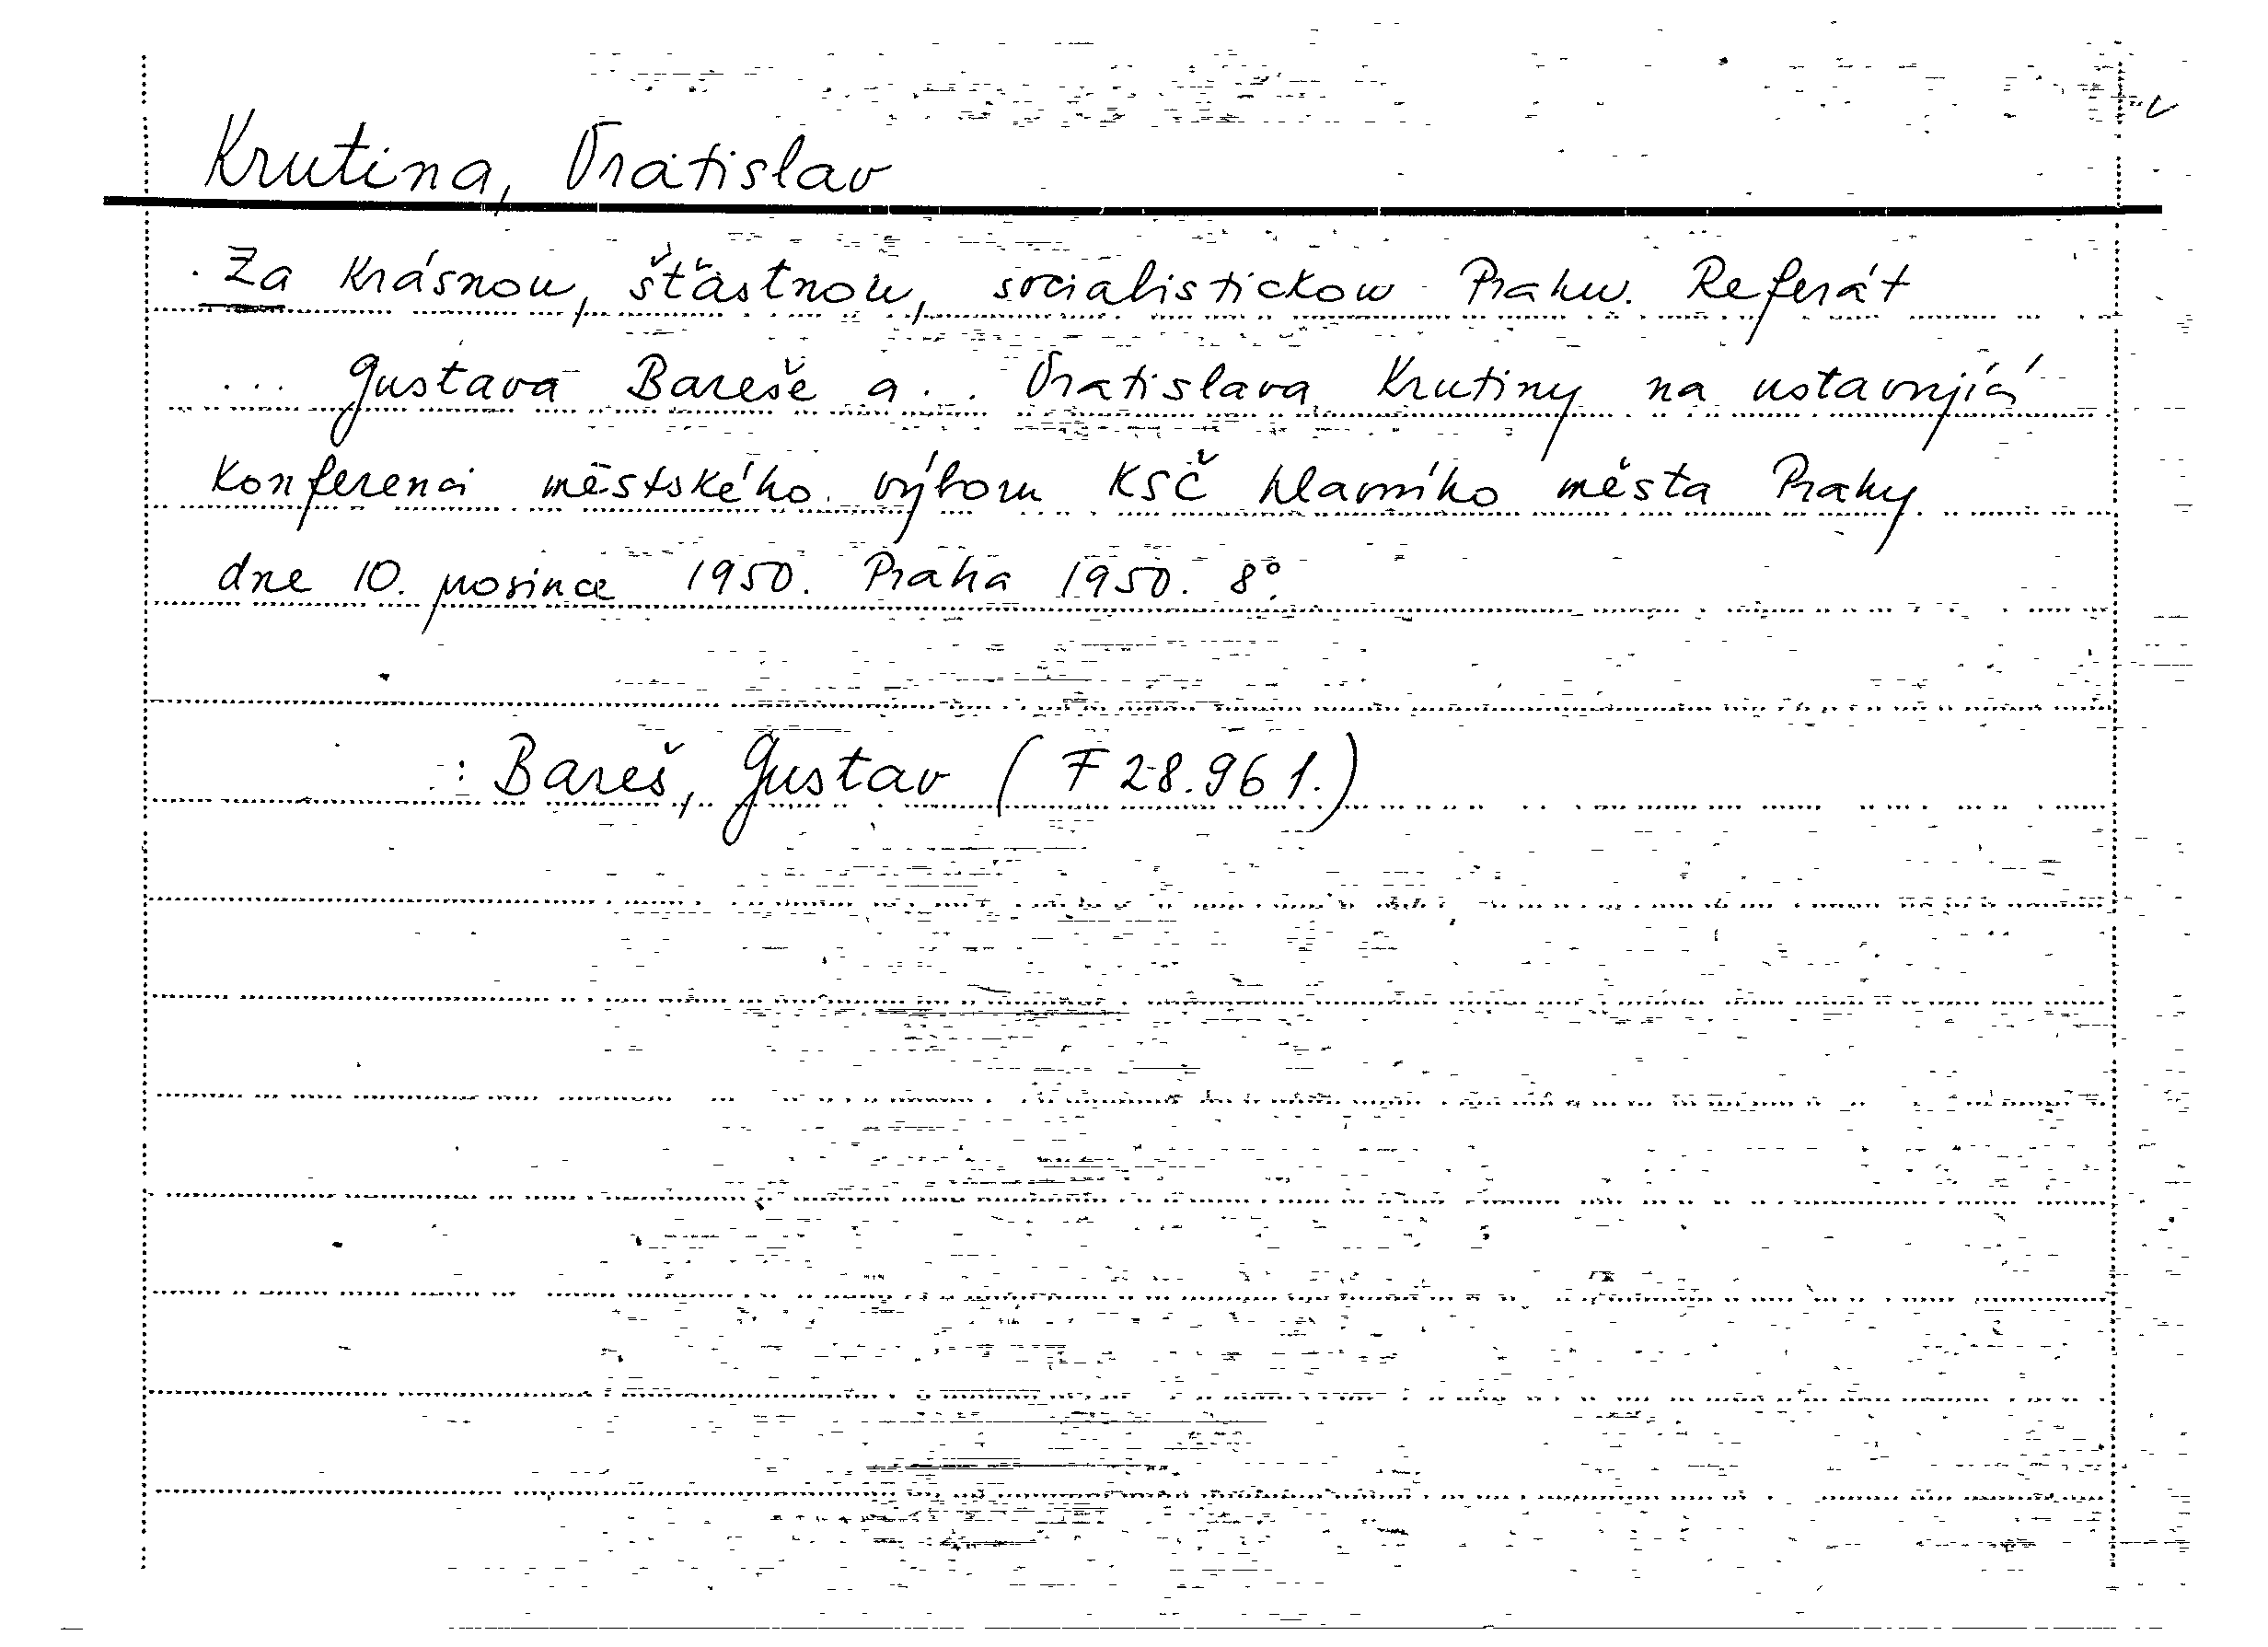 Krutina, Vratislav
Za krásnou, šťastnou, socialistickou Prahu. Referát
... Gustava Bareše a .. Vratislava Krutiny na ustavující
konferenci městského výboru KSČ hlavního města Prahy
dne 10. prosince 1950. Praha 1950. 8°.
: Bareš, Gustav (F 28.961.)